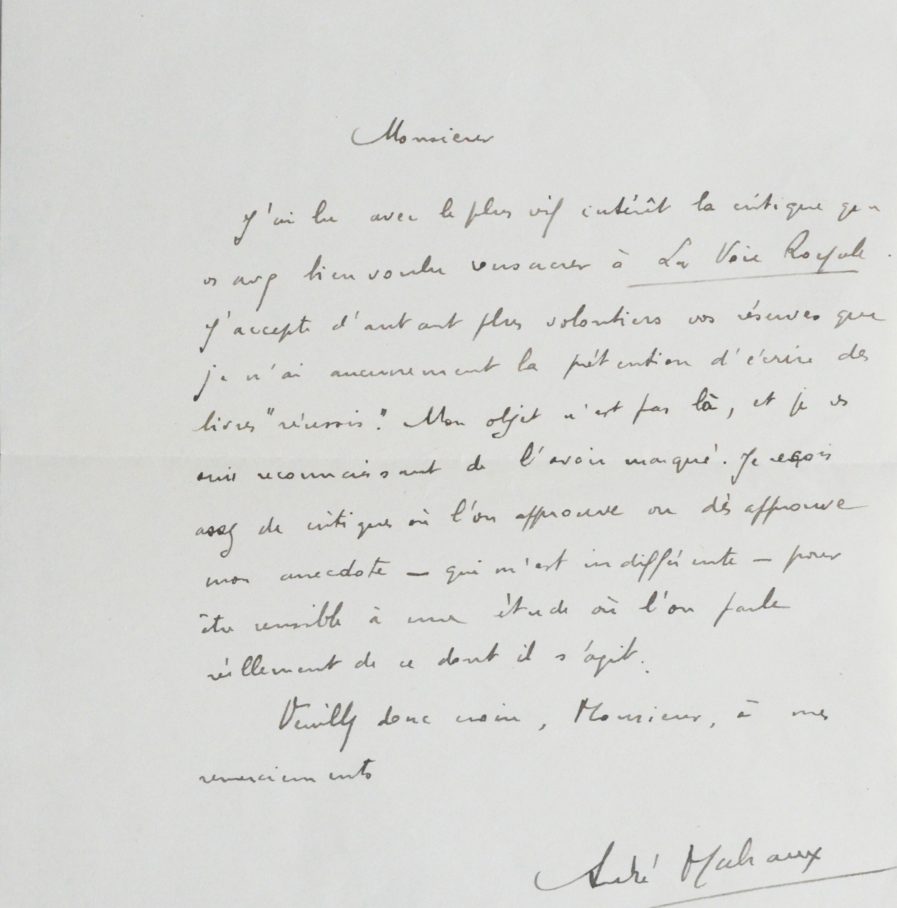 Monsieur
J'ai lu avec le plus vif intérêt la critique que
vs avez bien voulu consacrer à La Voie Royale.
J'accepte d'autant plus volontiers vos réserves que
je n'ai aucunement la prétention d'écrire des
livres "réussis". Mon objet n'est pas là, et je vs
suis reconnaissant de l'avoir marqué. Je reçois
assez de critiques où l'on approuve ou désapprouve
mon anecdote — qui m'est indifférente — pour
être sensible à une étude où l'on parle
réellement de ce dont il s'agit.
Veuillez donc croire, Monsieur, à mes
remerciements
André Malraux